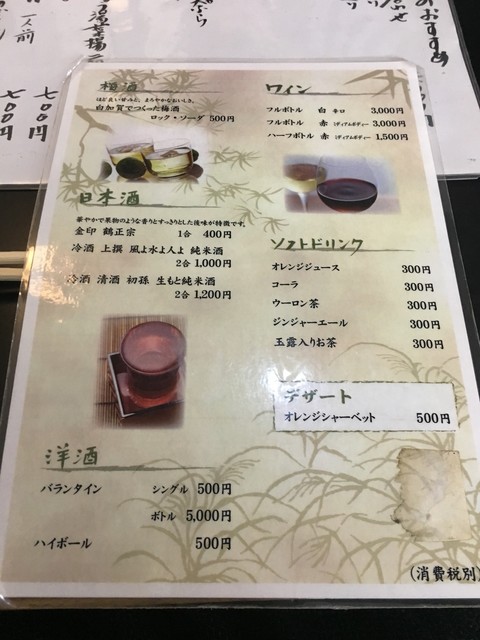 のおすすめ
七〇〇円
七〇〇円
人前
梅酒
ほど良い甘さと、まろやかなおいしさ。
白加賀でつくった梅酒
ロック・ソーダ 500円
日本酒
華やかで果物のような香りとすっきりとした後味が特徴です。
金印 鶴正宗 1合 400円
冷酒 上撰 風よ水よ人よ 純米酒
2合 1,000円
冷酒 清酒 初孫 生もと純米酒
2合 1,200円
洋酒
バランタイン シングル 500円
ボトル 5,000円
ハイボール 500円
ワイン
フルボトル 白 辛口 3,000円
フルボトル 赤 ミディアムボディー 3,000円
ハーフボトル 赤 ミディアムボディー 1,500円
ソフトドリンク
オレンジジュース 300円
コーラ 300円
ウーロン茶 300円
ジンジャーエール 300円
玉露入りお茶 300円
デザート
オレンジシャーベット 500円
(消費税別)